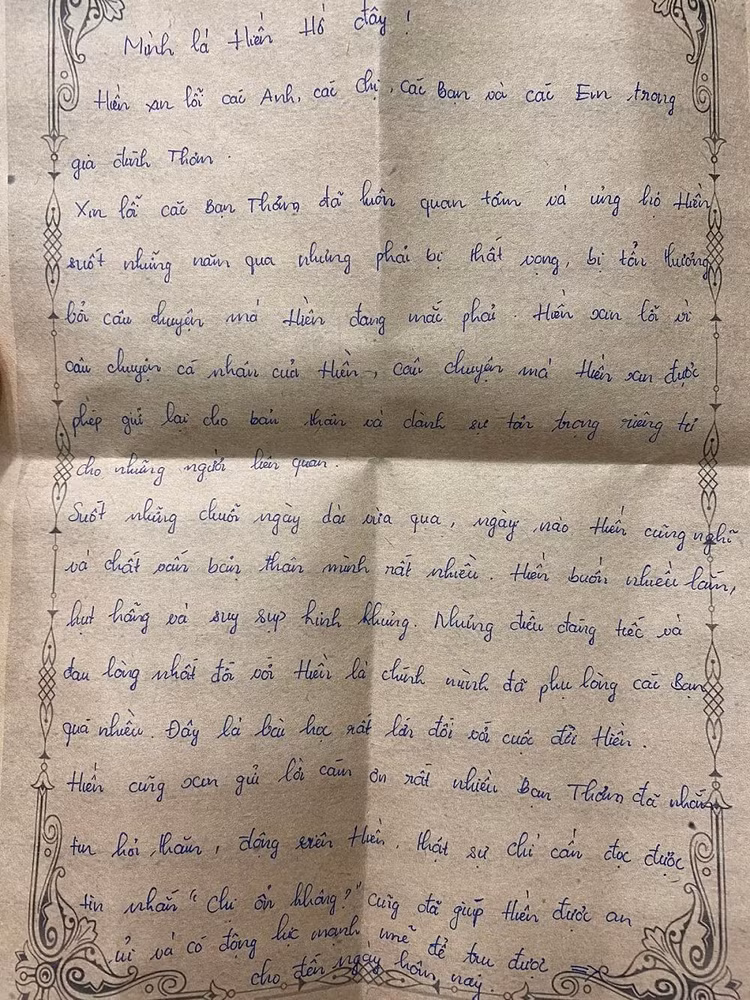 Mình là Hiền Hồ đây !
Hiền xin lỗi các Anh, các chị, các Bạn và các Em trong
gia đình Thơm.
Xin lỗi các Bạn Thơm đã luôn quan tâm và ủng hộ Hiền
suốt những năm qua nhưng phải bị thất vọng, bị tổn thương
bởi câu chuyện mà Hiền đang mắc phải. Hiền xin lỗi vì
câu chuyện cá nhân của Hiền, câu chuyện mà Hiền xin được
phép giữ lại cho bản thân và dành sự tôn trọng riêng tư
cho những người liên quan.
Suốt những chuỗi ngày dài vừa qua, ngày nào Hiền cũng nghĩ
và chất vấn bản thân mình rất nhiều. Hiền buồn nhiều lắm,
hụt hẫng và suy sụp kinh khủng. Nhưng điều đáng tiếc và
đau lòng nhất đối với Hiền là chính mình đã phụ lòng các Bạn
quá nhiều. Đây là bài học rất lớn đối với cuộc đời Hiền.
Hiền cũng xin gửi lời cảm ơn rất nhiều Bạn Thơm đã nhắn
tin hỏi thăm, động viên Hiền, thật sự chỉ cần đọc được
tin nhắn "Chị ổn không?" cũng đã giúp Hiền được an
ủi và có động lực mạnh mẽ để trụ được
cho đến ngày hôm nay.